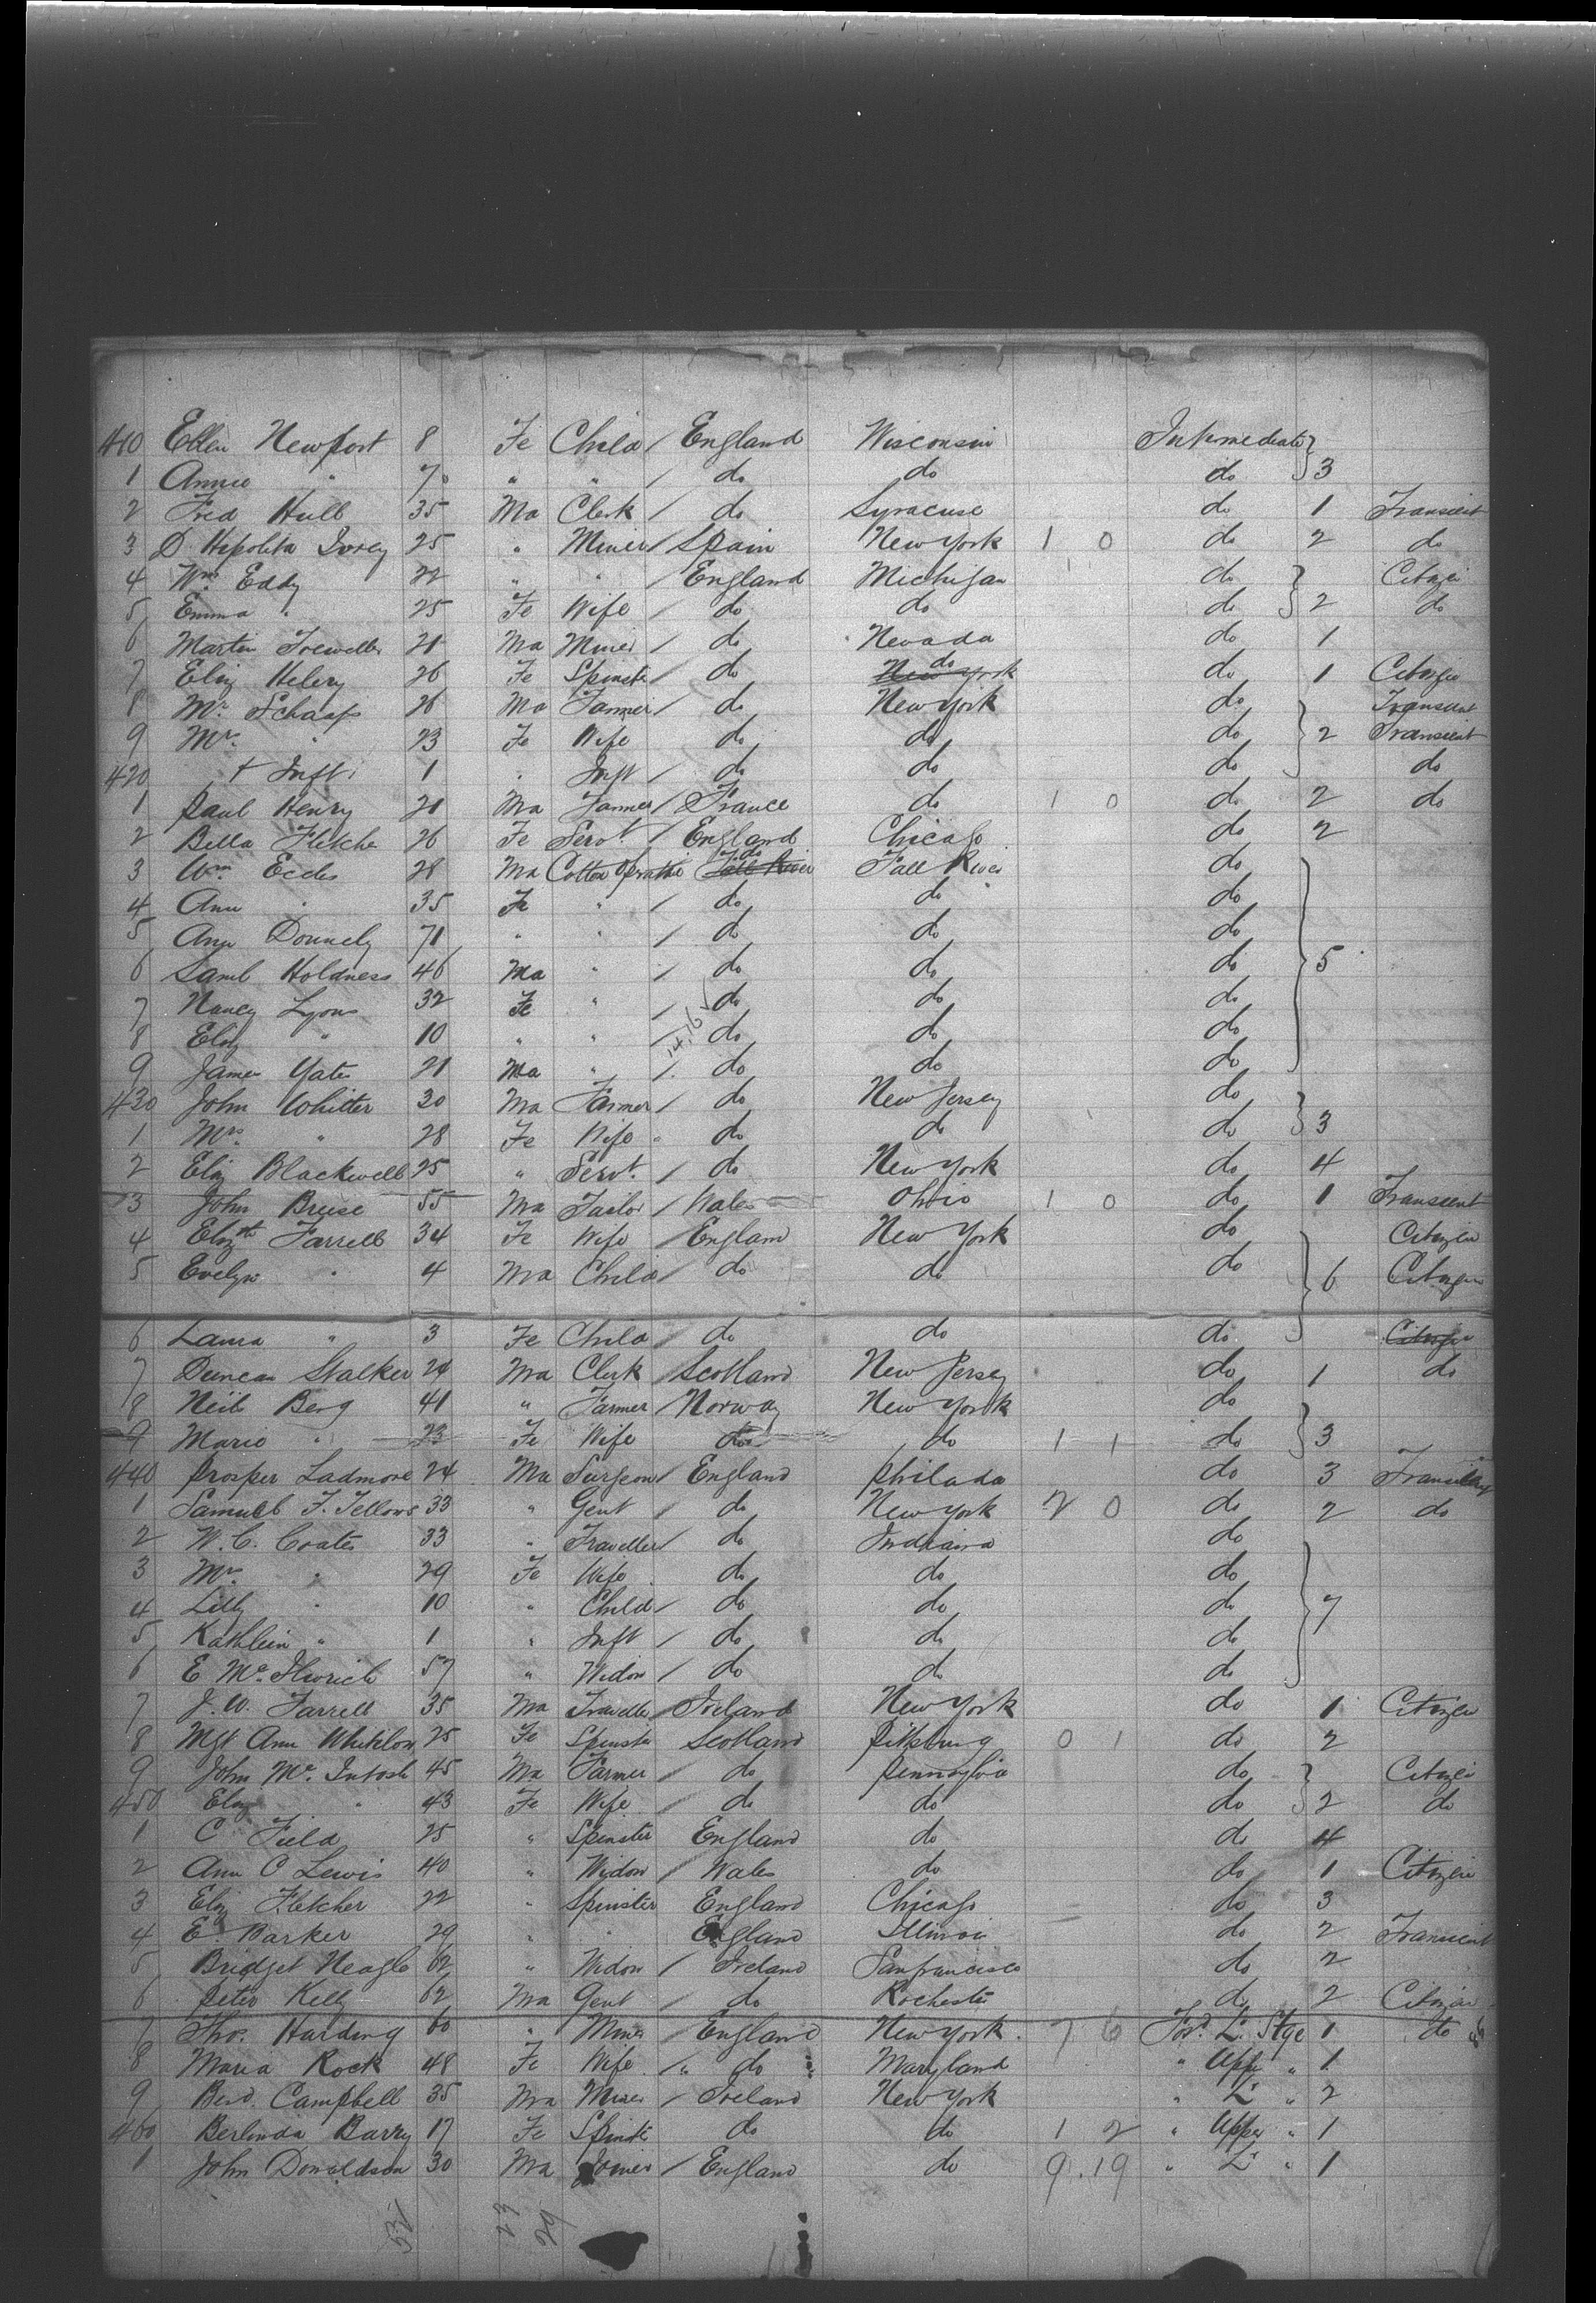 410 Ellen Newport 8 Fe Child / England Wisconsin Intermediate
1 Annie " 7 " " / do do do 3
2 Fred Hull 35 Ma Clerk / do Syracuse do 1 Transient
3 D. Hipolita 25 " Miner / Spain New York 1 0 do 2 do
4 Wm Eddy 22 " " / England Michigan do Citizen
5 Emma " 25 Fe Wife / do do do 2 do
6 Martin 21 Ma Miner / do Nevada do 1
7 Eliz Helery 26 Fe Spinster / do do New York do 1 Citizen
8 Mr. Schaaps 26 Ma Farmer / do New York do Transient
9 Mrs " 23 Fe Wife do do do 2 Transient
420 + Inft 1 " Inft / do do do do
1 Paul Henry 21 Ma Farmer / France do 1 0 do 2 do
2 Bella Fletche 26 Fe Servt / England Chicago do 2
3 Wm. Eccles 28 Ma Cotton Operative do Fall River Fall River do
4 Ann " 35 Fe " / do do do
5 Ann Donnely 71 " " / do do do
6 Saml Holdness 46 Ma " / do do do 5
7 Nancy Lyons 32 Fe " / do do do
8 Eliz " 10 " " / do do do
9 James Yates 21 Ma " / do do do
430 John Whitter 30 Ma Farmer / do New Jersey do
1 Mrs " 28 Fe Wife " do do do 3
2 Eliz Blackwell 25 " Servt. / do New York do 4
3 John Breise 55 Ma Tailor / Wales Ohio 1 0 do 1 Transient
4 Elizth Farrell 34 Fe Wife / England New York do Citizen
5 Evelyn " 4 Ma Child / do do do 6 Citizen
6 Laura " 3 Fe Child / do do do Citizen
7 Duncan Stalker 24 Ma Clerk / Scotland New Jersey do 1 do
8 Neils Berg 41 " Farmer / Norway New York do
9 Marie " 23 Fe Wife do do 1 1 do 3
440 Prosper Ladmore 24 Ma Surgeon / England Philada do 3 Transient
1 Samuel F. Fellows 33 " Gent / do New York 2 0 do 2 do
2 W. C. Coates 33 " Traveller / do Indiana do
3 Mrs " 29 Fe Wife do do do
4 Lilly " 10 " Child / do do do 7
5 Kathleen " 1 " Inft / do do do
6 E Mc 57 " Widow / do do do
7 J. W. Farrell 35 Ma Traveller / Ireland New York do 1 Citizen
8 Mgt Ann 25 Fe Spinster Scotland Pittsburg 0 1 do 2
9 John Mc Intosh 45 Ma Farmer / do Pennsylvia do Citizen
450 Eliz " 43 Fe Wife / do do do 2 do
1 C Field 25 " Spinster England do do 4
2 Ann O Lewis 40 " Widow / Wales do do 1 Citizen
3 Eliz Fletcher 22 " Spinster England Chicago do 3
4 E. Barker 29 " " England Illinois do 2 Transient
5 Bridget Neagle 62 " Widow / Ireland Sanfrancisco do 2
6 Peter Kelly 62 Ma Gent / do Rochester do 2 Citizen
7 Tho. Harding 60 " Miner / England New York 7 6 Ford. L. Stge 1 do
8 Maria Rock 48 Fe Wife " do Maryland " Upp " 1
9 Bend. Campbell 35 Ma Miner / Ireland New York " L " 2
460 Berlinda Barry 17 Fe Spinster do do 1 2 " Upper " 1
1 John Donaldson 30 Ma Joiner / England do 9.19 " L " 1
23
29